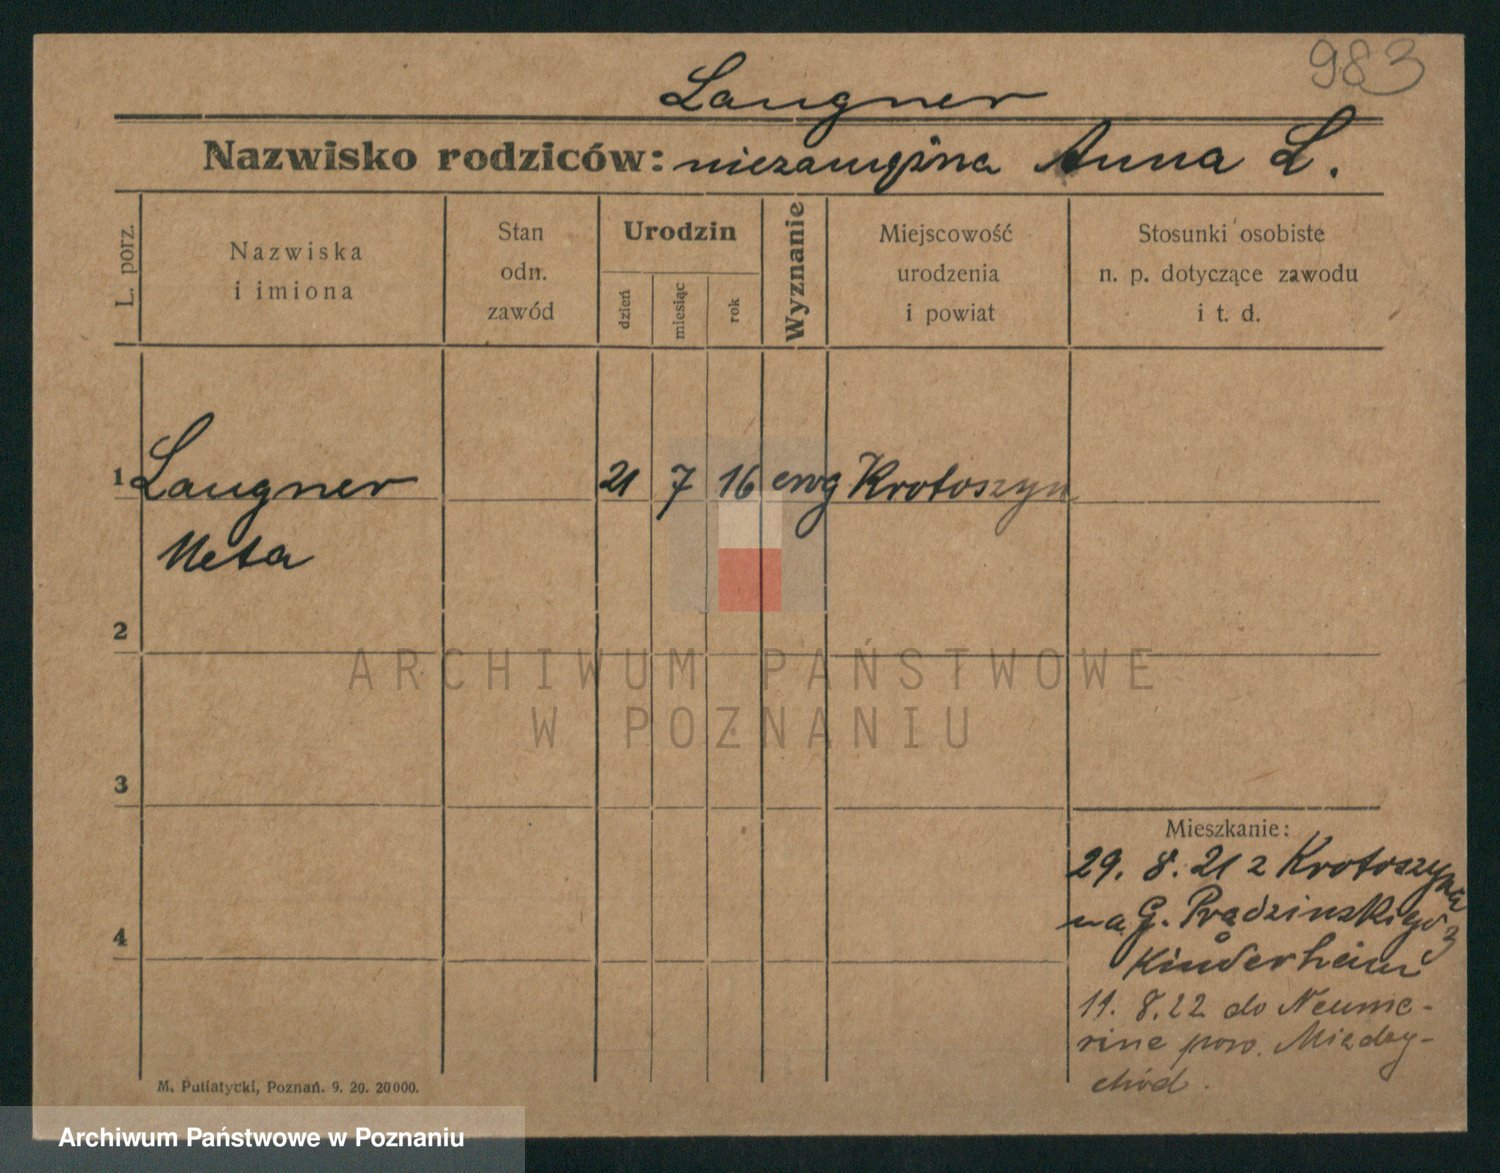 983
Laugner
Nazwisko rodziców: niezamężna Anna L.
L. porz.
Nazwiska
i imiona
Stan
odn.
zawód
Urodzin
dzień
miesiąc
rok
Wyznanie
Miejscowość
urodzenia
i powiat
Stosunki osobiste
n. p. dotyczące zawodu
i t. d.
1 Laugner 21 7 16 ewg Krotoszyn
Meta
2
ARCHIWUM PAŃSTWOWE
W POZNANIU
3
Mieszkanie:
29. 8. 21 z Krotoszyna
na G. Prądzinskiego 3
4
Kinderheim
11. 8. 22 do Neume-
rine pow. Między-
chód.
M. Putiatycki, Poznań. 9. 20. 20000.
Archiwum Państwowe w Poznaniu